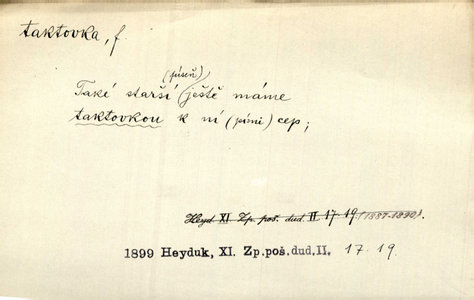 taktovka, f.
(píseň)
Také starší (ještě máme
taktovkou k ní (písni) cep;
Heyd XI. Zp. poš. dud. II 17.19 (1897-1898).
1899 Heyduk, XI. Zp.poš.dud.II. 17.19.